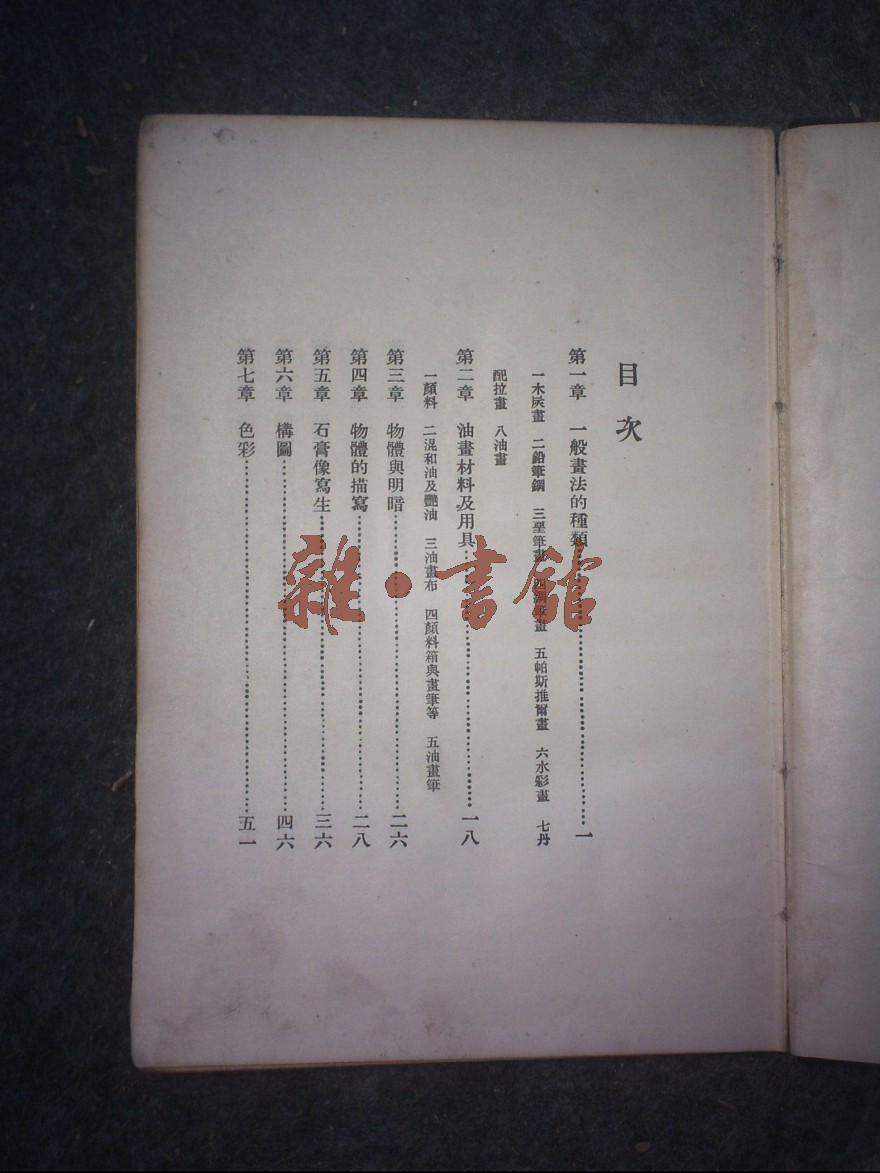 目次
第一章 一般畫法的種類……一
一木炭畫 二鉛筆畫 三堊筆畫 四鋼筆畫 五帕斯推爾畫 六水彩畫 七丹
配拉畫 八油畫
第二章 油畫材料及用具……一八
一顏料 二混和油及艷油 三油畫布 四顏料箱與畫筆等 五油畫筆
第三章 物體與明暗……二六
第四章 物體的描寫……二八
第五章 石膏像寫生……三六
第六章 構圖……四六
第七章 色彩……五一
雜·書館